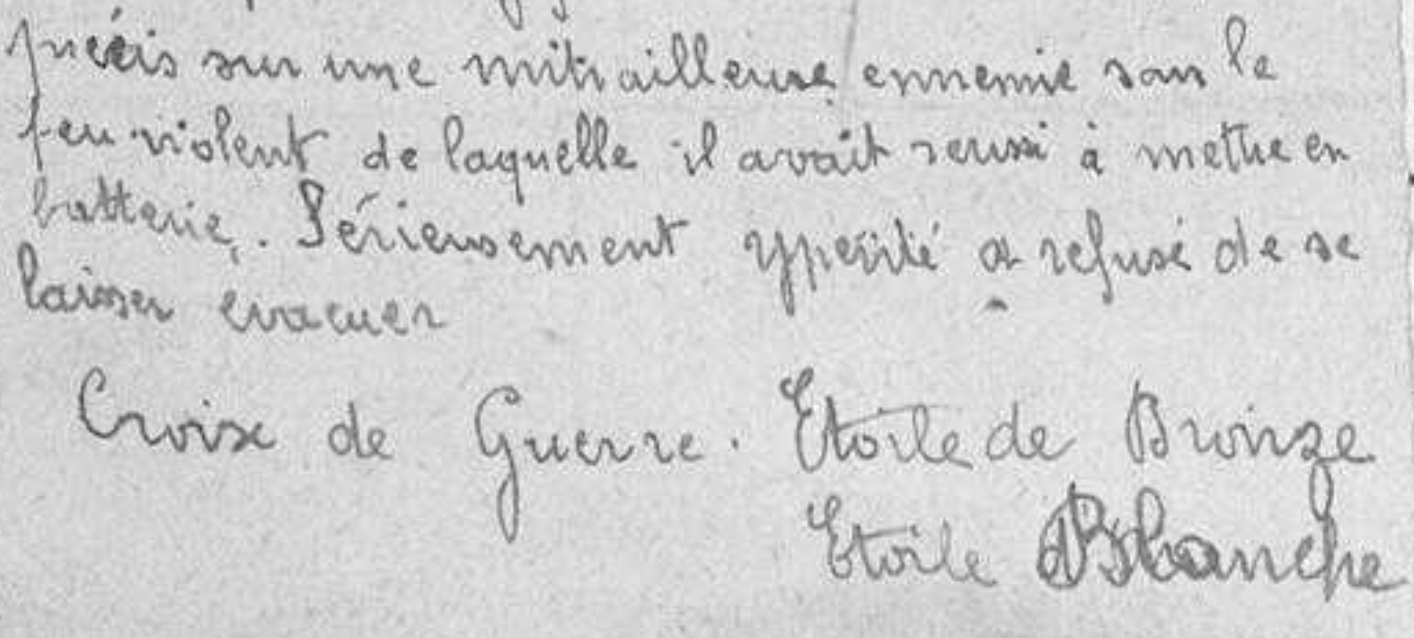 précis sur une mitrailleuse ennemie sous le
feu violent de laquelle il avait reussi à mettre en
batterie. Sérieusement yperité a refusé de se
laisser evacuer
Croix de Guerre. Etoile de Bronze
Etoile Blanche